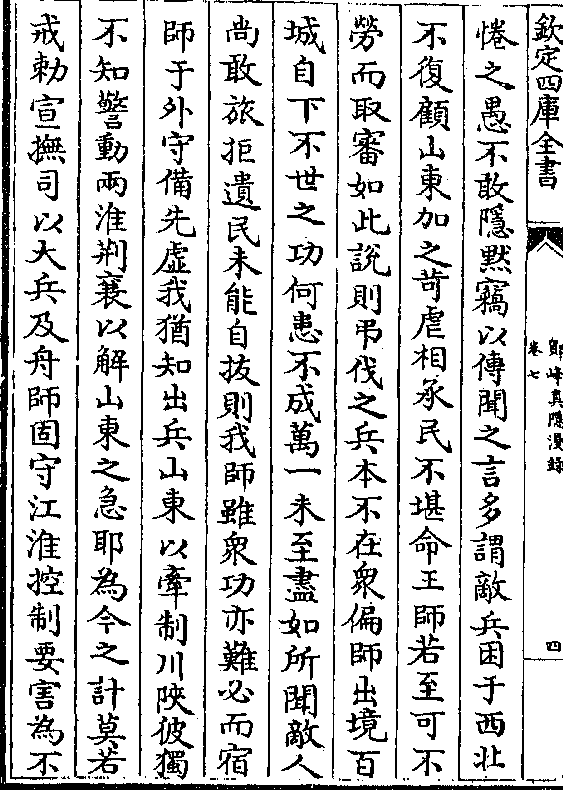 欽定四庫全書
鄮峰真隱漫錄
卷七
四
惓之愚不敢隱黙竊以傳聞之言多謂敵兵困于西北
不復顧山東加之苛虐相承民不堪命王師若至可不
勞而取審如此說則弔伐之兵本不在衆偏師出境百
城自下不世之功何患不成萬一未至盡如所聞敵人
尚敢旅拒遺民未能自拔則我師雖衆功亦難必而宿
師于外守備先虛我猶知出兵山東以牽制川陝彼獨
不知警動兩淮荆襄以解山東之急耶為今之計莫若
戒勅宣撫司以大兵及舟師固守江淮控制要害為不